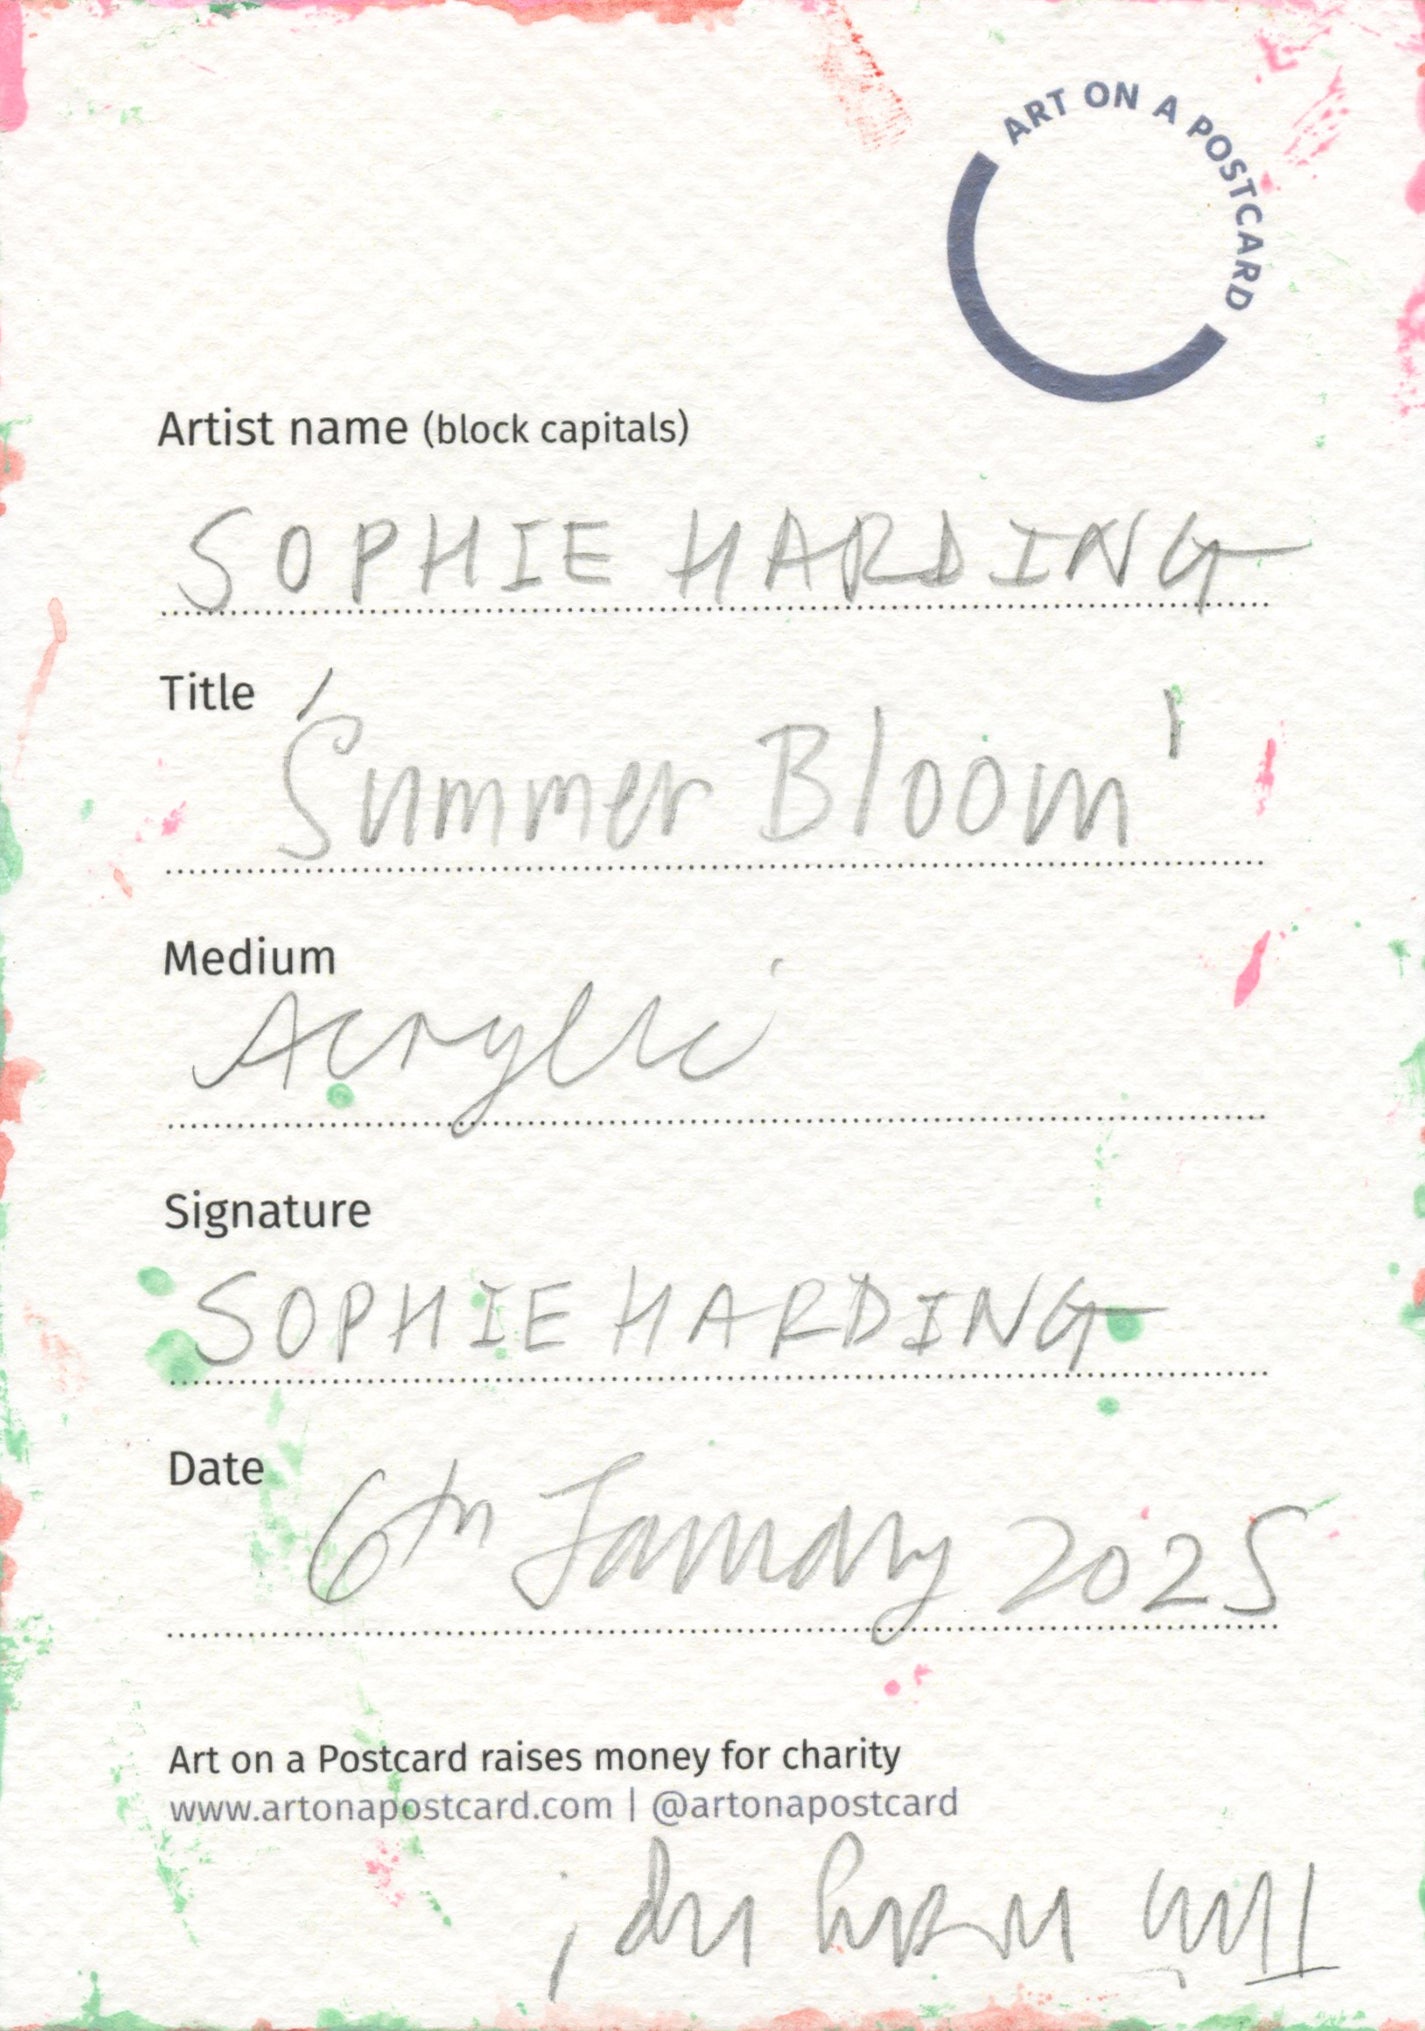 ART ON A POSTCARD
Artist name (block capitals)
SOPHIE HARDING
Title
'Summer Bloom'
Medium
Acrylic
Signature
SOPHIE HARDING
Date
6th January 2025
Art on a Postcard raises money for charity
www.artonapostcard.com | @artonapostcard
This way up!